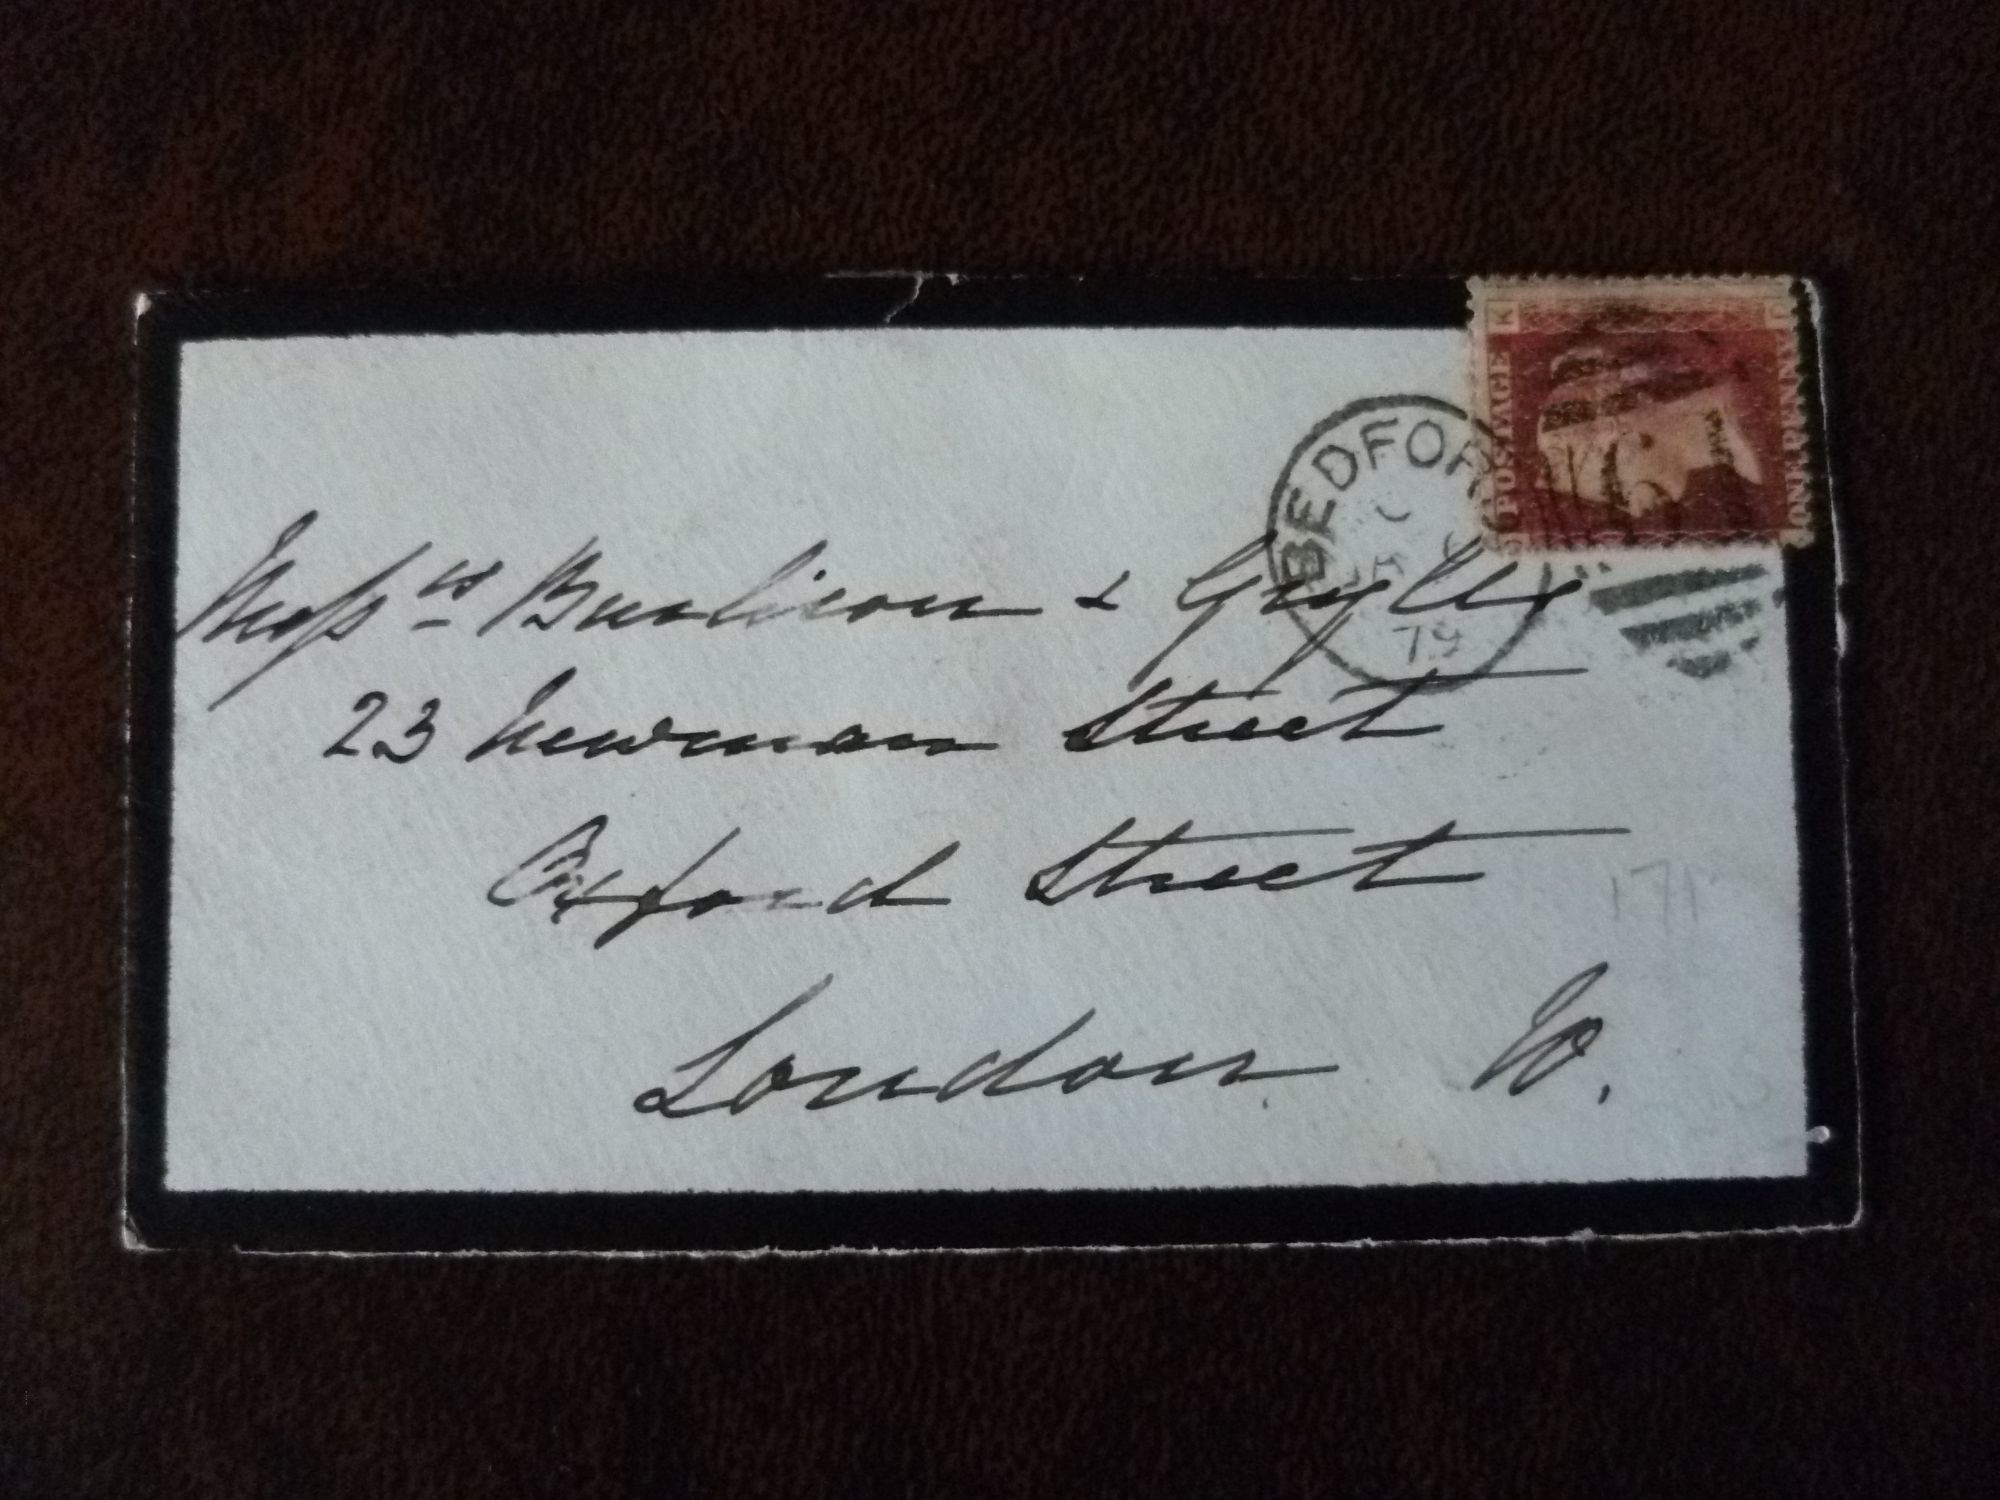 BEDFORD
C
JA 6
79
POSTAGE
ONE PENNY
K
Messrs Burlison & Grylls
23 Newman Street
Oxford Street
171
London W.